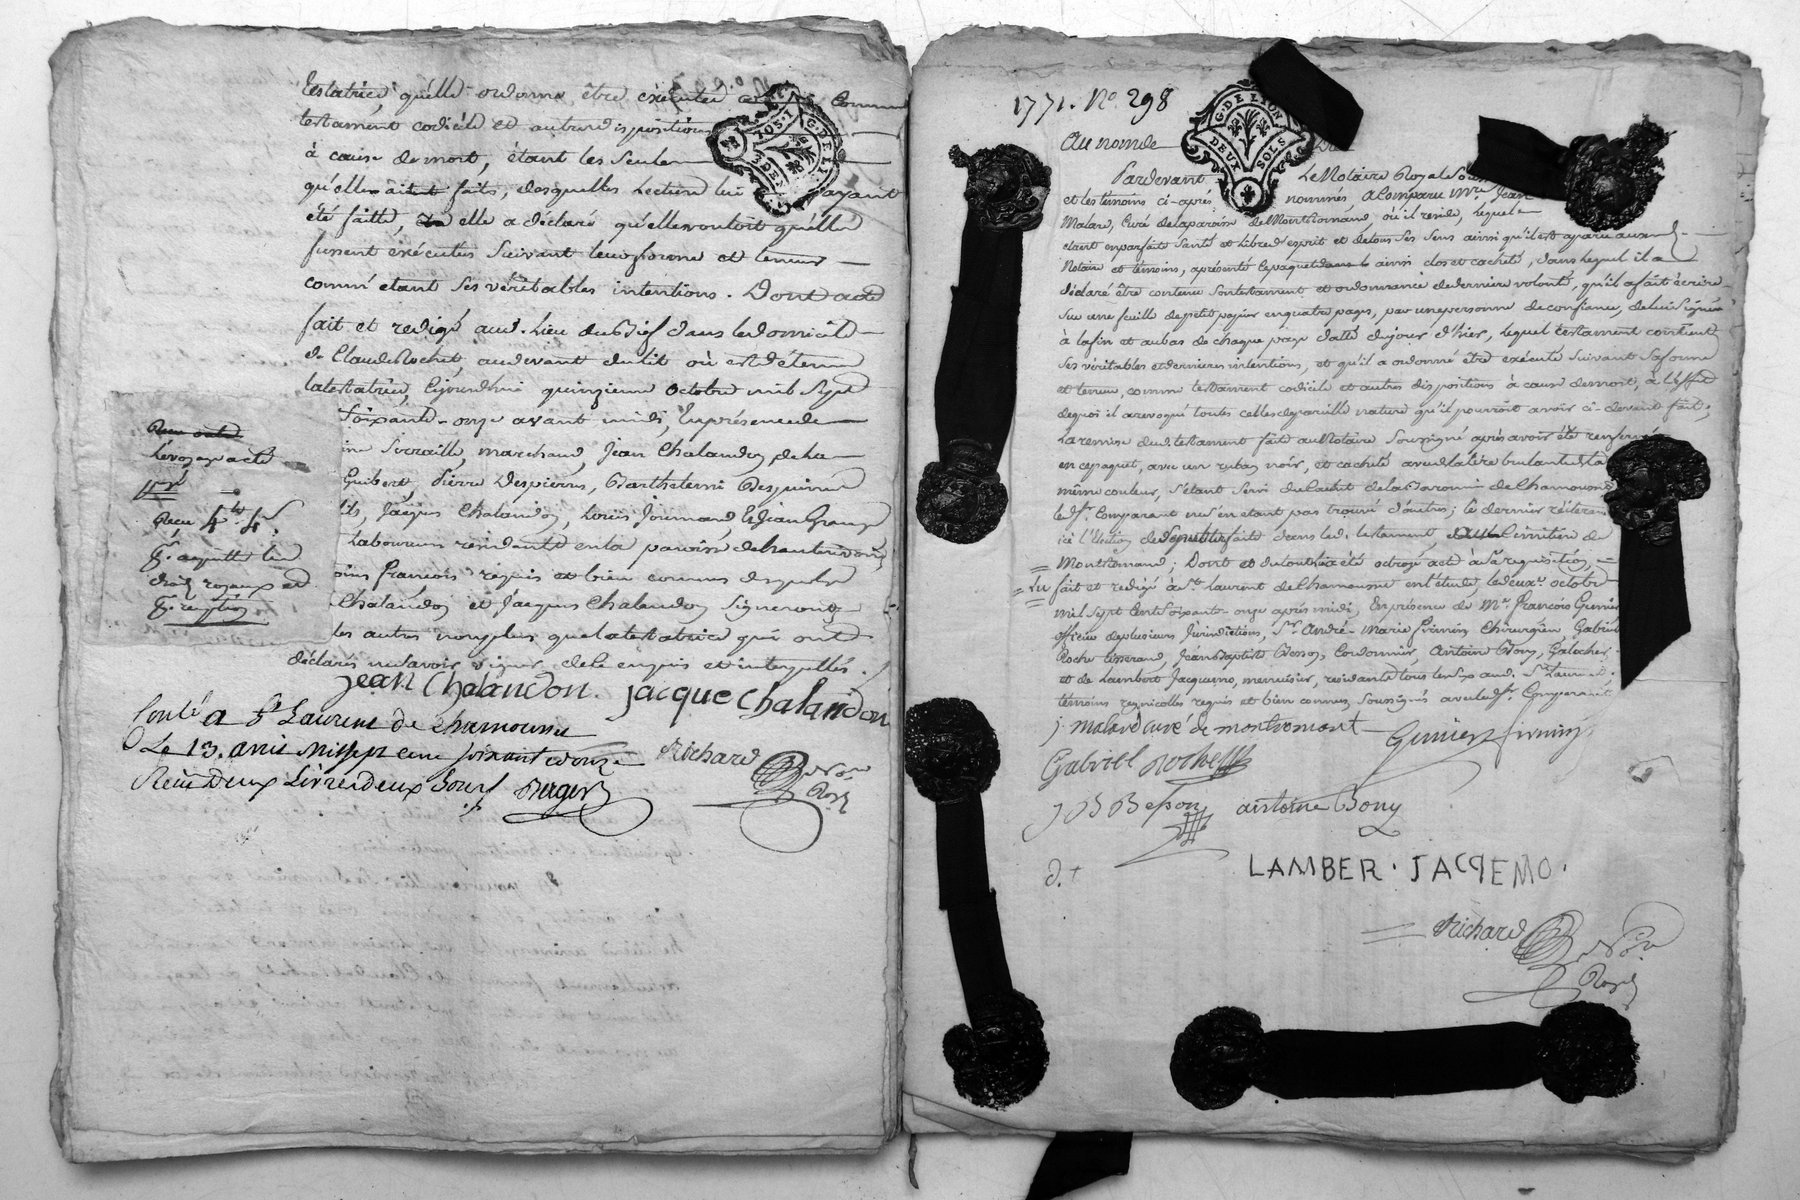 testatrice, qu'elle ordonne être exécutée comme
testament codicile et autres dispositions
à cause de mort, étant les seules
qu'elle ait faits, desquelles lecture lui ayant
été faitte, elle a déclaré qu'elle vouloit qu'elles
fussent exécutées suivant leur forme et teneur
comme etant ses véritables intentions. Dont acte
fait et redigé aud. lieu du Bief dans le domicile
de Claude Rochet, au devant du lit où est détenue
la testatrice, cejourd'hui quinzieme octobre mil sept
soixante-onze avant midi, En présence de
marchand, Jean Chalandon de la
Guibert, Pierre Despierres, Barthelemi
Jaques Chalandon, Louis et Jean
Laboureurs residents en la paroisse de
françois requis et bien connus desquels
Chalandon et Jacques Chalandon signeront
les autres non plus que la testatrice qui ont
déclarés ne savoir signer, de ce enquis et interpellés.
jean Chalandon. jacque chalandon
Conlé a St Laurent de Chamousset
Le 13. mil sept cent soixante
Reçu Deux Livres deux sous Berger
Richard
Nore
Royl
Reçu
4# 4s
acquitté les
droits royaux et
G. DE LION
DEUX
1771. No. 298
G. DE LION
DEUX SOLS
Au nom de
Pardevant Le Notaire Royal
et les témoins ci-après nommés, a Comparu Mre. Jean
Malard, Curé de la paroisse de Montromand, où il reside, lequel
etant en parfaite santé et libre d'esprit et de tous ses sens ainsi qu'il est aparu auxd.
Notaire et témoins, a présenté ce paquet ainsi clos et cacheté, dans lequel il a
déclaré être contenu son testament et ordonnance de derniere volonté, qu'il a fait écrire
sur une feuille de petit papier en quatre pages, par une personne de confiance, de lui signée
à la fin et au bas de chaque page datté du jour d'hier, lequel testament contient
ses véritables et dernieres intentions, et qu'il a ordonné être exécuté suivant sa forme
et teneur, comme testament codicile et autres dispositions à cause de mort, à l'effet
de quoi il a revoqué toutes celles de pareille nature qu'il pourroit avoir ci-devant fait;
La remise dud. testament faite au Notaire soussigné après avoir été renfermé
en ce paquet, avec un ruban noir, et cacheté avec de la cire brulante de la
même couleur, s'étant servi du cachet de la Baronnie de Chamousset
led. Sr. Comparant n'en etant pas trouvé d'autres; le dernier réiterant
ici l'élection de sépulture faite dans led. testament, Cimitiere de
Montromand; Dont et de tout a été octroyé acte à sa requisition,
Lu fait et redigé à St. Laurent de Chamousset en l'étude, le deuxe. octobre
mil sept cent soixante-onze après midi, En présence de Me. François Grenier
officier de plusieurs Jurisdictions, Sr. André-Marie Firmin Chirurgien, Gabriel
Roche tisserand, Jean Baptiste Besson, Cordonnier, Antoine Bony,
et de Lambert Jacquemo, menuisier, residants tous aud. St. Laurent,
témoins regnicolles requis et bien connus, soussignés avec led. Sr. Comparant
j malard curé de montromant Grenier firmin
Gabriel roche
J B Besson antoine Bony
LAMBER . JACQEMO .
Richard
Nore
Royl